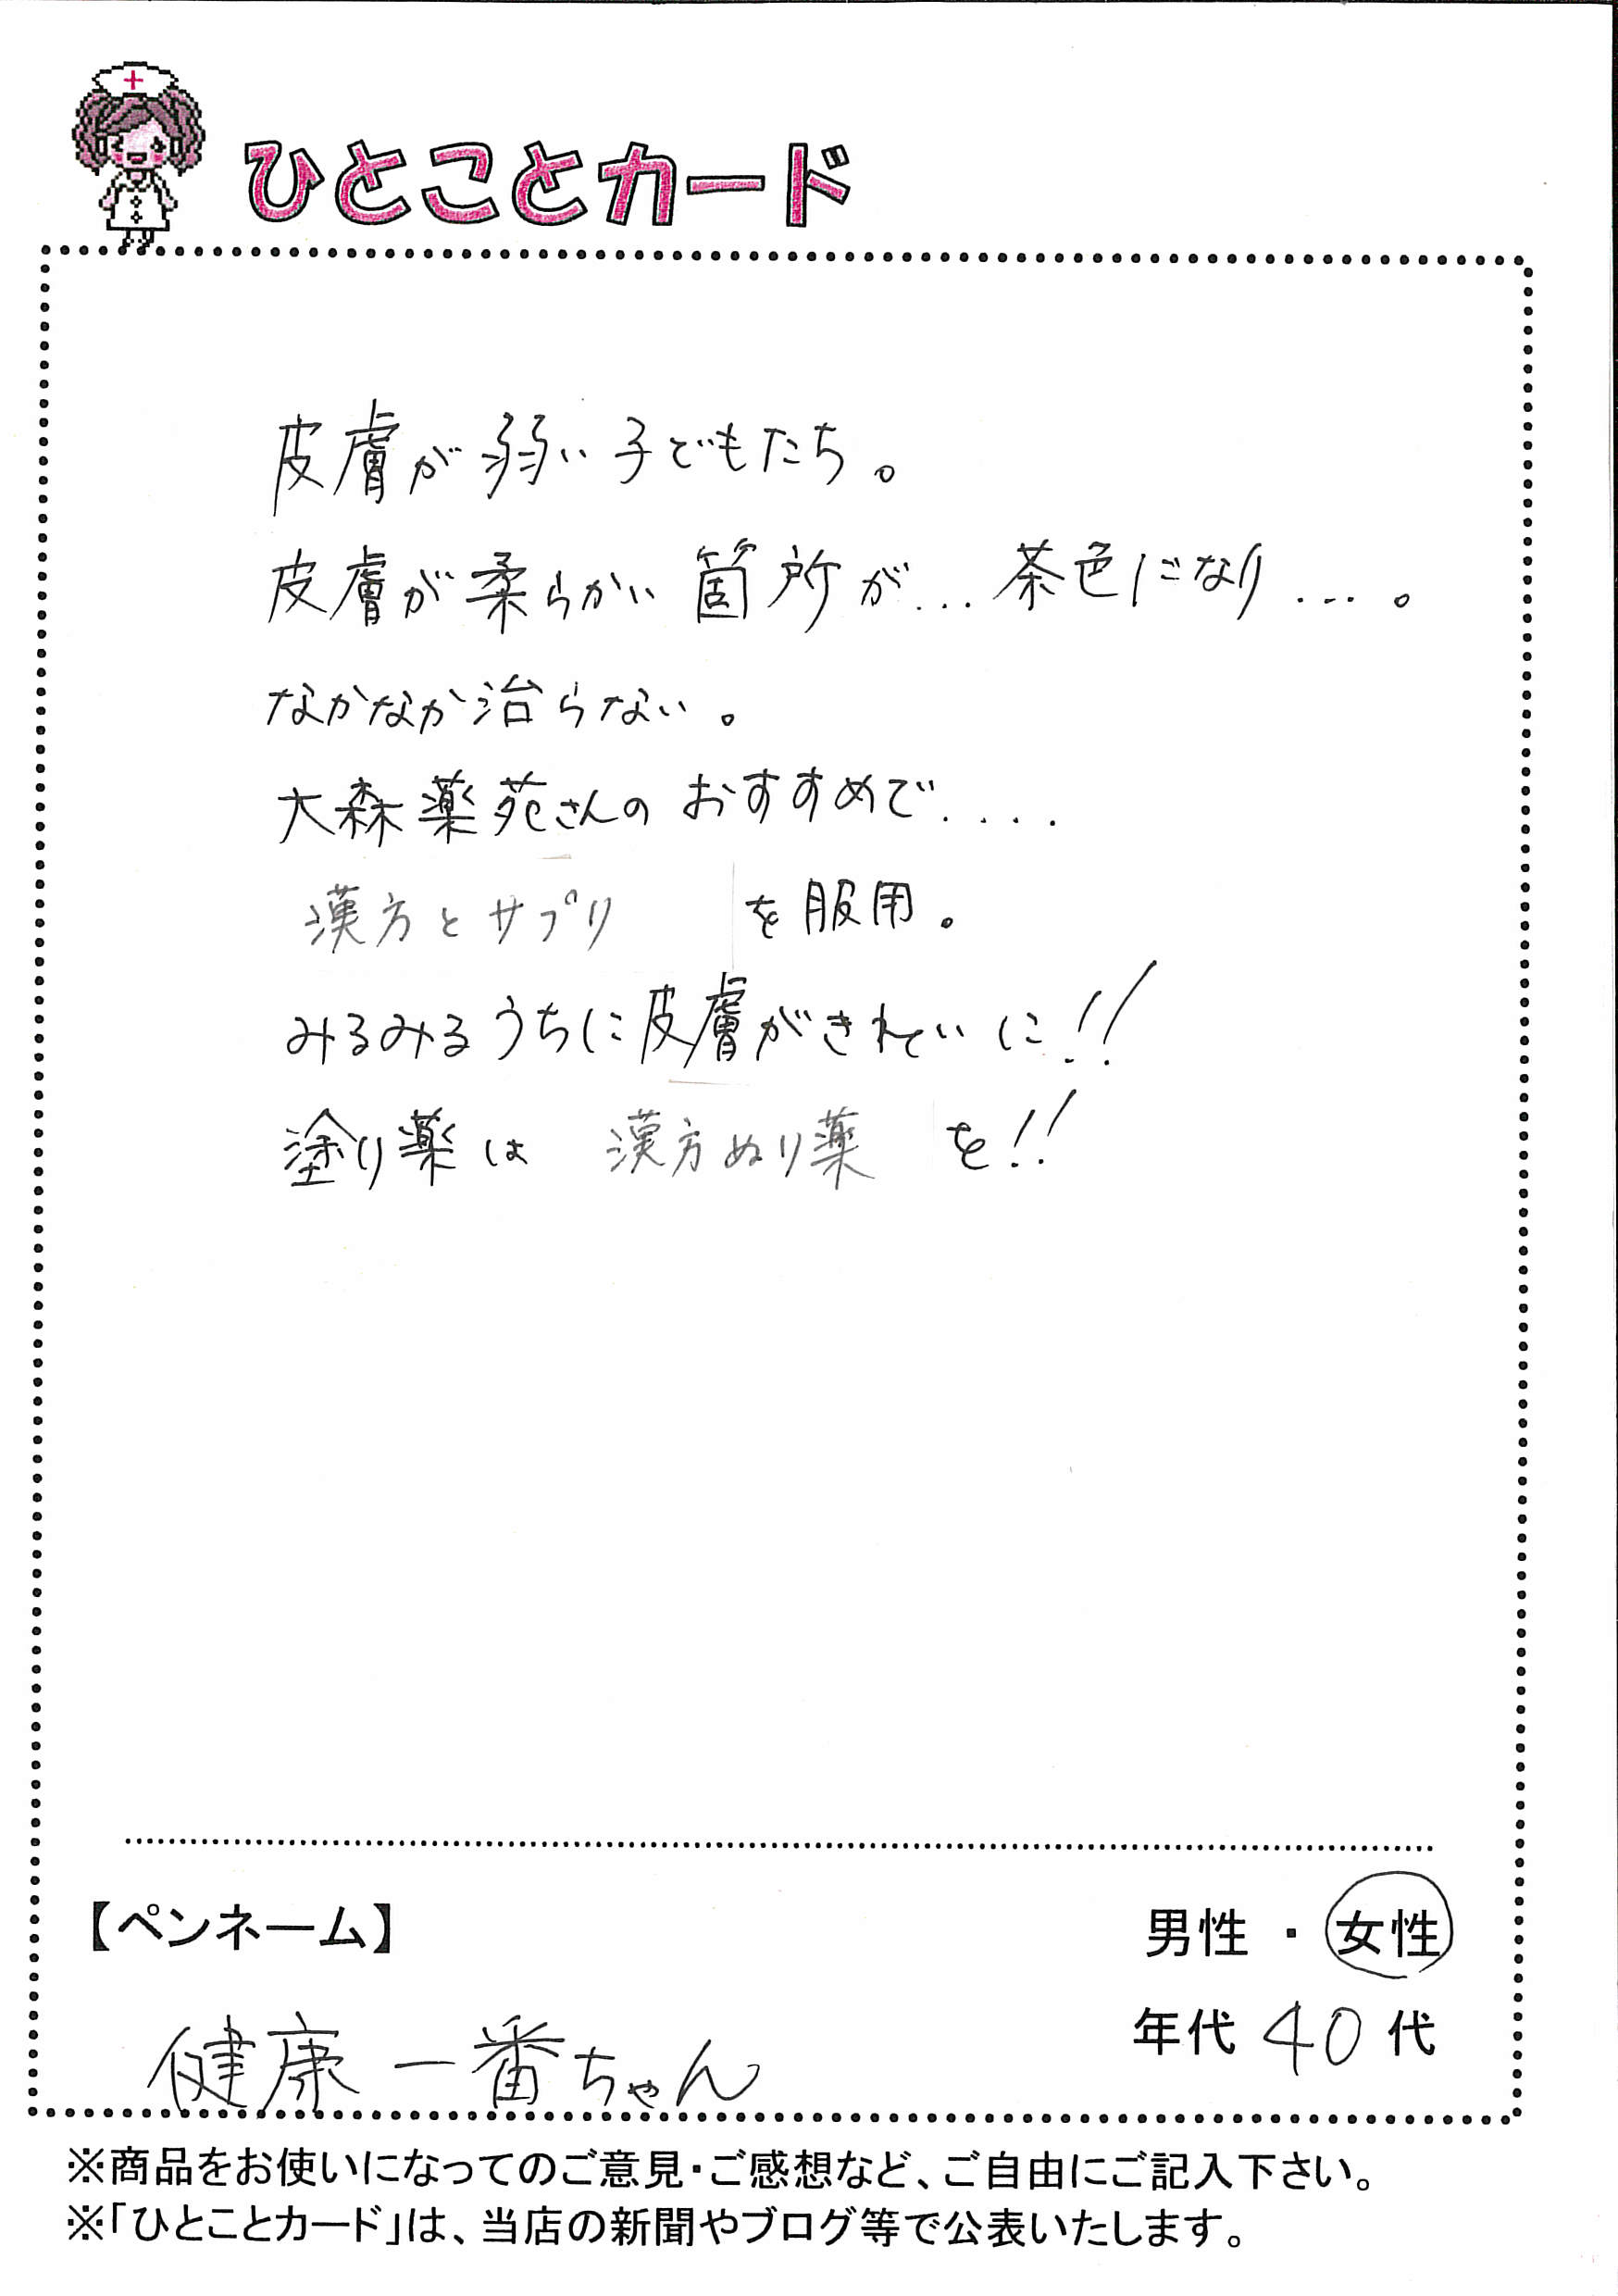 ひとことカード
皮膚が弱い子どもたち。
皮膚が柔らかい箇所が...茶色になり...。
なかなか治らない。
大森薬苑さんのおすすめで....
漢方とサプリ を服用。
みるみるうちに皮膚がきれいに!!
塗り薬は 漢方ぬり薬 を!!
【ペンネーム】
男性 ・ 女性
年代 40 代
健康一番ちゃん
※商品をお使いになってのご意見・ご感想など、ご自由にご記入下さい。
※「ひとことカード」は、当店の新聞やブログ等で公表いたします。